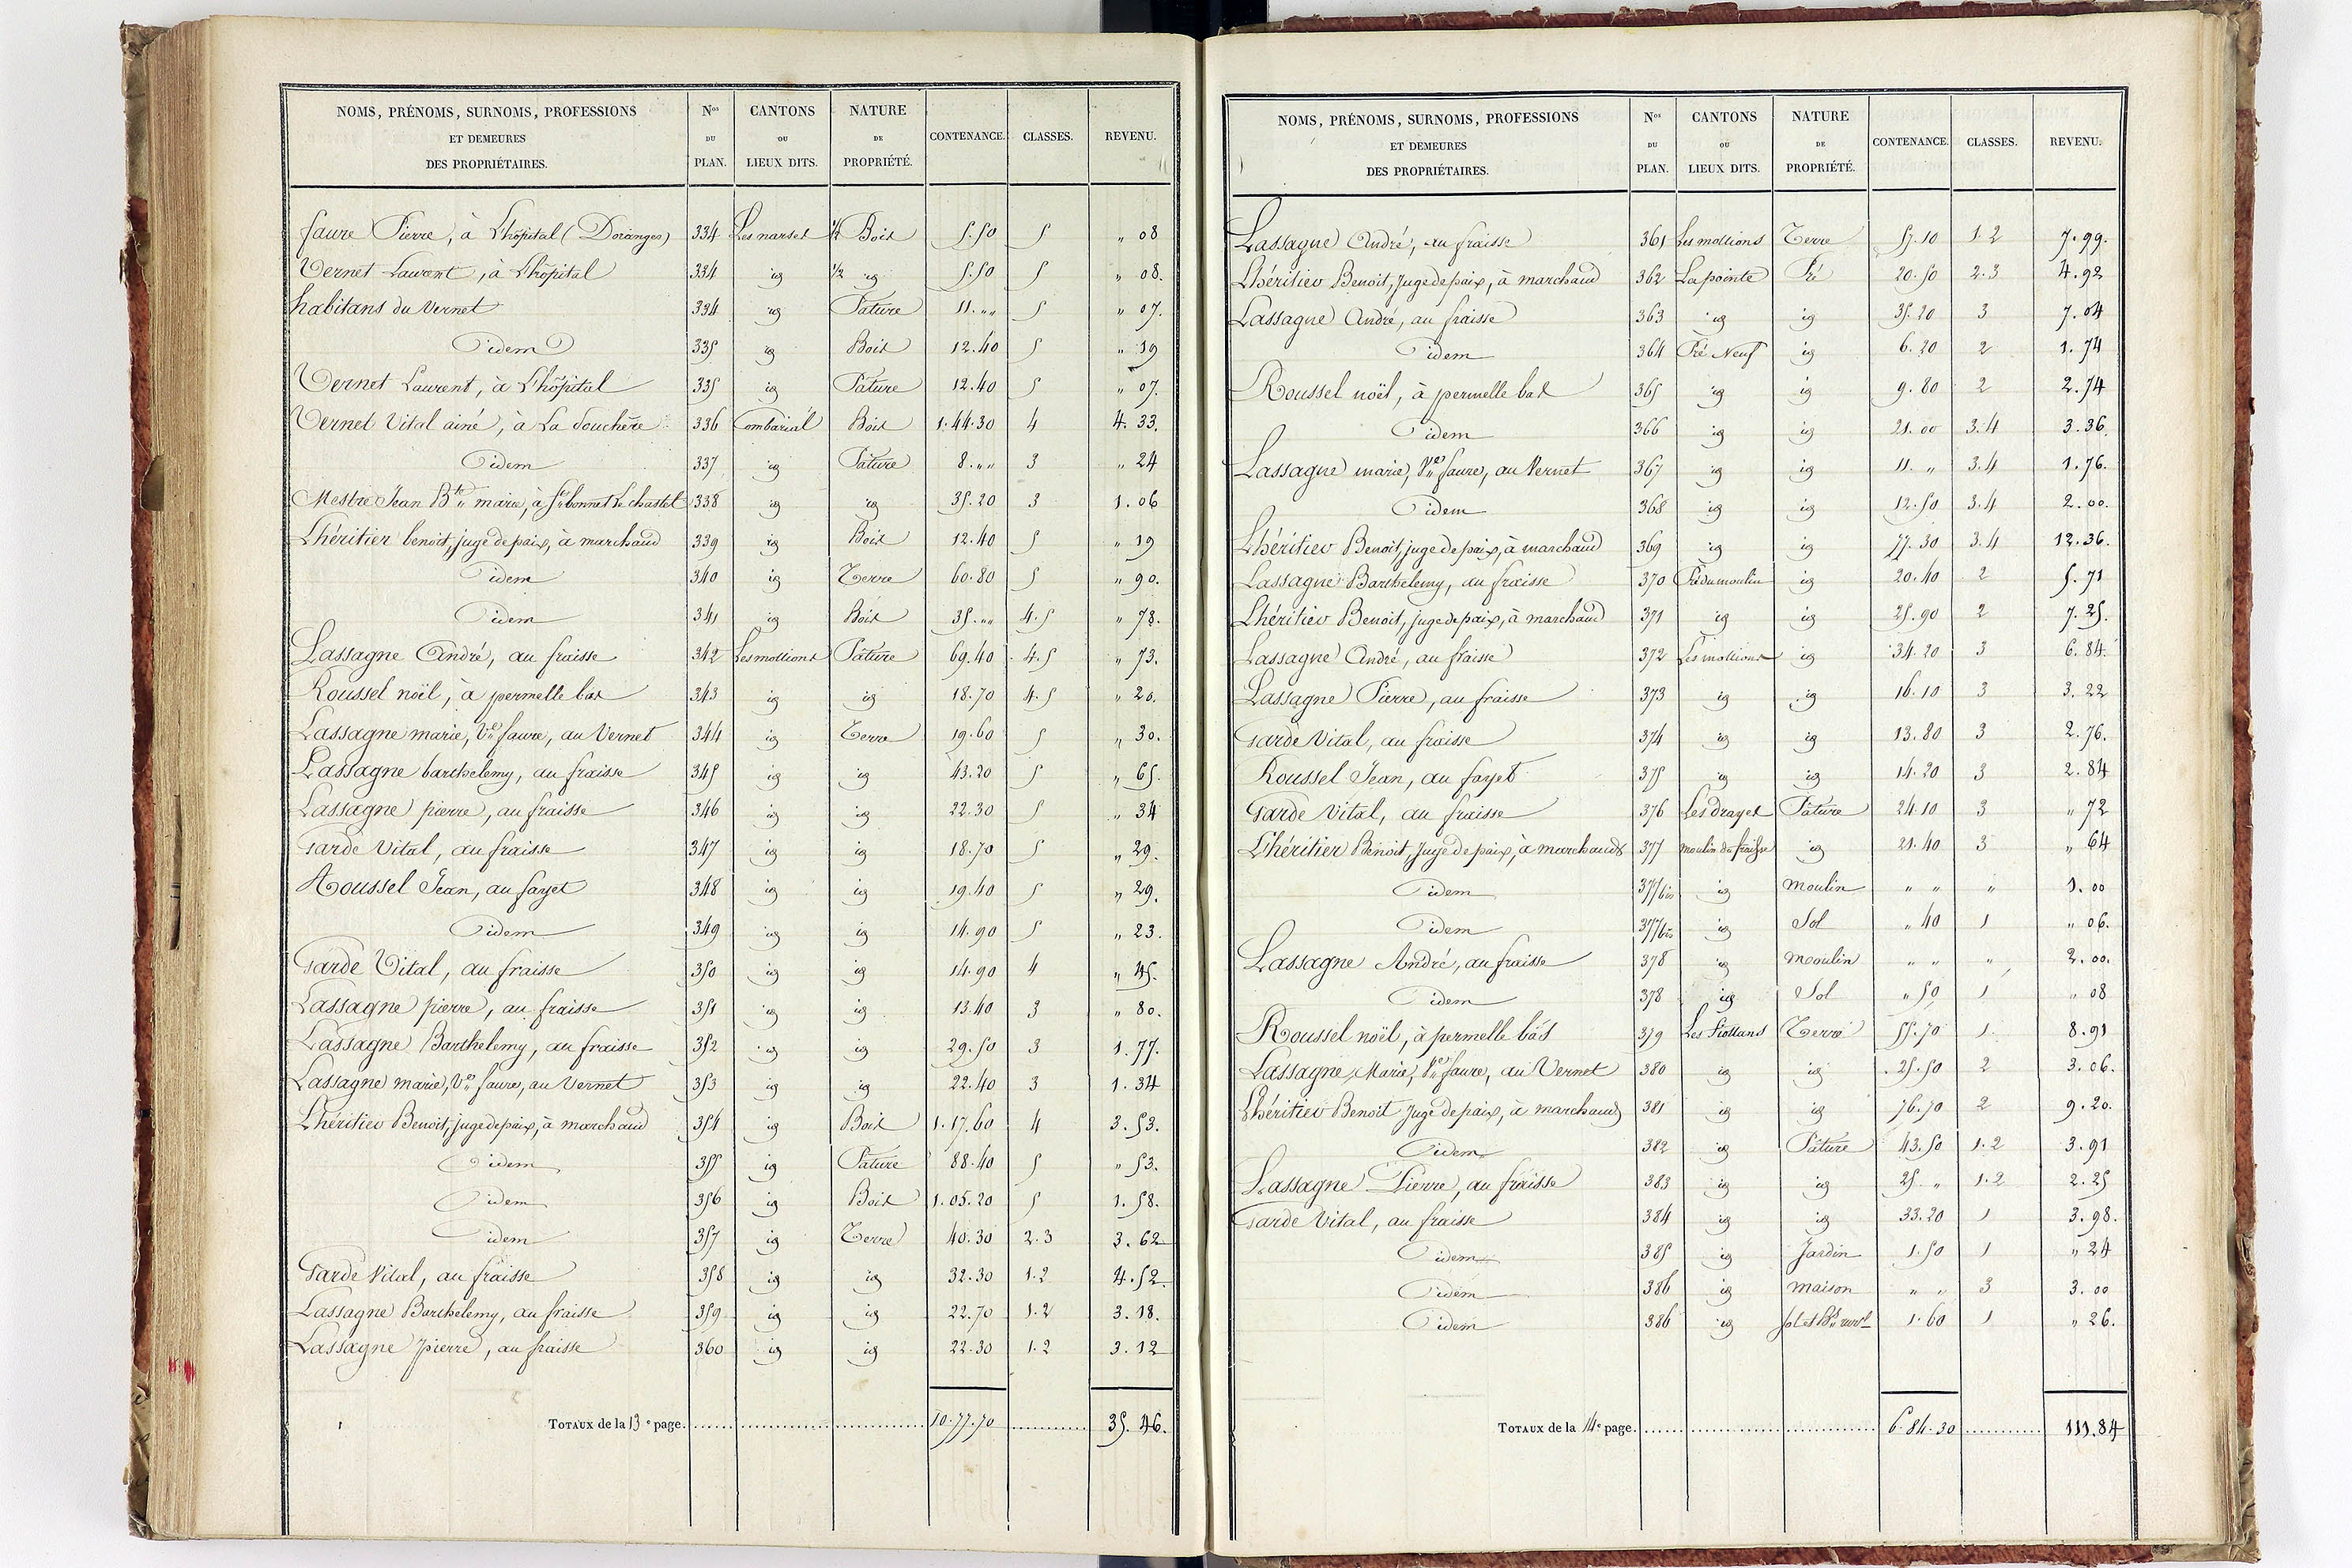 NOMS, PRÉNOMS, SURNOMS, PROFESSIONS ET DEMEURES DES PROPRIÉTAIRES. Nos DU PLAN. CANTONS OU LIEUX DITS. NATURE DE PROPRIÉTÉ. CONTENANCE. CLASSES. REVENU.
faure Pierre, à L'hôpital (Doranges) 334 Les narses ½ Bois 5.50 5 " 08
Vernet Laurent, à L'hôpital 334 id ½ id 5.50 5 " 08.
habitans du Vernet 334 id Pature 11. " " 5 " 07.
idem 335 id Bois 12.40 5 " 19
Vernet Laurent, à L'hôpital 335 id Pature 12.40 5 " 07.
Vernet Vital ainé, à La Souchère 336 Combarial Bois 1.44.30 4 4.33.
idem 337 id Pature 8. " " 3 " 24
Mestre Jean Bte marie, à St bonnet Le chastel 338 id id 35.20 3 1.06
Lhéritier benoit, juge de paix, à marchaud 339 id Bois 12.40 5 " 19
idem 340 id Terre 60.80 5 " 90.
idem 341 id Bois 35. " " 4.5 " 78.
Lassagne André, au fraisse 342 Les mottions Pature 69.40 4.5 " 73.
Roussel noël, à permelle bas 343 id id 18.70 4.5 " 20.
Lassagne marie, Ve faure, au Vernet 344 id Terre 19.60 5 " 30.
Lassagne barthelemy, au fraisse 345 id id 43.20 5 " 65.
Lassagne pierre, au fraisse 346 id id 22.30 5 " 34
Tarde Vital, au fraisse 347 id id 18.70 5 " 29.
Roussel Jean, au fayet 348 id id 19.40 5 " 29.
idem 349 id id 14.90 5 " 23.
Tarde Vital, au fraisse 350 id id 14.90 4 " 45.
Lassagne pierre, au fraisse 351 id id 13.40 3 " 80.
Lassagne Barthelemy, au fraisse 352 id id 29.50 3 1.77.
Lassagne marie, Ve faure, au Vernet 353 id id 22.40 3 1.34
Lhéritier Benoit, juge de paix, à marchaud 354 id Bois 1.17.60 4 3.53.
idem 355 id Pature 88.40 5 " 53.
idem 356 id Bois 1.05.20 5 1.58.
idem 357 id Terre 40.30 2.3 3.62
Tarde Vital, au fraisse 358 id id 32.30 1.2 4.52.
Lassagne Barthelemy, au fraisse 359 id id 22.70 1.2 3.18.
Lassagne pierre, au fraisse 360 id id 22.30 1.2 3.12
TOTAUX de la 13e page. 10.77.70 35.46.
NOMS, PRÉNOMS, SURNOMS, PROFESSIONS ET DEMEURES DES PROPRIÉTAIRES. Nos DU PLAN. CANTONS OU LIEUX DITS. NATURE DE PROPRIÉTÉ. CONTENANCE. CLASSES. REVENU.
Lassagne André, au fraisse 361 Les mottions Terre 57.10 1.2 7.99.
Lhéritier Benoit, Juge de paix, à marchaud 362 La pointe Pré 20.50 2.3 4.92
Lassagne André, au fraisse 363 id id 35.20 3 7.04
idem 364 Pré Neuf id 6.20 2 1.74
Roussel noël, à permelle bas 365 id id 9.80 2 2.74
idem 366 id id 21.00 3.4 3.36.
Lassagne marie, Ve faure, au Vernet 367 id id 11. " 3.4 1.76.
idem 368 id id 12.50 3.4 2.00.
Lhéritier Benoit, juge de paix, à marchaud 369 id id 77.30 3.4 12.36.
Lassagne Barthelemy, au fraisse 370 Pré du moulin id 20.40 2 5.71
Lhéritier Benoit, juge de paix, à marchaud 371 id id 25.90 2 7.25.
Lassagne André, au fraisse 372 Les mottions id 34.20 3 6.84.
Lassagne Pierre, au fraisse 373 id id 16.10 3 3.22
Tarde Vital, au fraisse 374 id id 13.80 3 2.76.
Roussel Jean, au fayet 375 id id 14.20 3 2.84
Tarde Vital, au fraisse 376 Les drayes Pature 24.10 3 " 72
Lhéritier Benoit, Juge de paix, à marchaud 377 moulin du fraisse id 21.40 3 " 64
idem 377bis id moulin " " " 1.00
idem 377bis id Sol " 40 1 " 06.
Lassagne André, au fraisse 378 id moulin " " " 2.00.
idem 378 id Sol " 50 1 " 08
Roussel noël, à permelle bas 379 Les Terre 55.70 1. 8.91
Lassagne Marie, Ve faure, au Vernet 380 id id 25.50 2 3.06.
Lhéritier Benoit Juge de paix, à marchaud 381 id id 76.70 2 9.20.
idem 382 id Pature 43.50 1.2 3.91
Lassagne Pierre, au fraisse 383 id id 25. " 1.2 2.25
Tarde Vital, au fraisse 384 id id 33.20 1 3.98.
idem 385 id Jardin 1.50 1 " 24
idem 386 id maison " " 3 3.00
idem 386 id sol et 1.60 1 " 26.
TOTAUX de la 14e page. 6.84.30 111.84